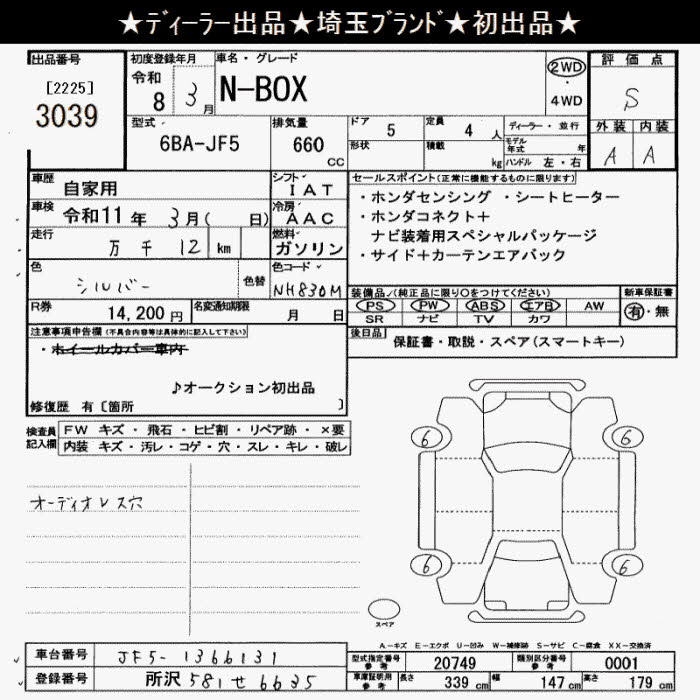 ★ディーラー出品★埼玉ブランド★初出品★
出品番号
[2225]
3039
初度登録年月
令和
8 3月
車名・グレード
N-BOX
2WD
・
4WD
評価点
S
外装 内装
A A
型式
6BA-JF5
排気量
660
CC
ドア 5
形状
定員 4 人
積載 kg
ディーラー・並行
モデル年式 年
ハンドル 左・右
車歴 自家用
車検 令和11年 3月( 日)
走行 万千12 km
色 シルバー 色替
シフト IAT
冷房 AAC
燃料 ガソリン
色コード NH830M
R券 14,200円
名変通知期限 月 日
セールスポイント(正常に機能するものに限ります)
・ホンダセンシング ・シートヒーター
・ホンダコネクト+
ナビ装着用スペシャルパッケージ
・サイド+カーテンエアバック
装備品/(純正品に限り〇をつけてください)
PS PW ABS エアB AW
SR ナビ TV カワ
新車保証書
有・無
後日品 保証書・取説・スペア(スマートキー)
注意事項申告欄(不具合内容等は具体的に記入して下さい)
・ホイールカバー車内
♪オークション初出品
修復歴 有〔箇所 〕
検査員記入欄
FW キズ・飛石・ヒビ割・リペア跡・×要
内装 キズ・汚レ・コゲ・穴・スレ・キレ・破レ
オーディオレス穴
6 6
6 6
スペア
A-キズ E-エクボ U-凹み W-補修跡 S-サビ C-腐食 XX-交換済
車台番号 JF5-1366131
登録番号 所沢 581せ6635
型式指定番号 参考 20749
類別区分番号 参考 0001
車庫証明用 参考 長さ 339cm 幅 147cm 高さ 179cm